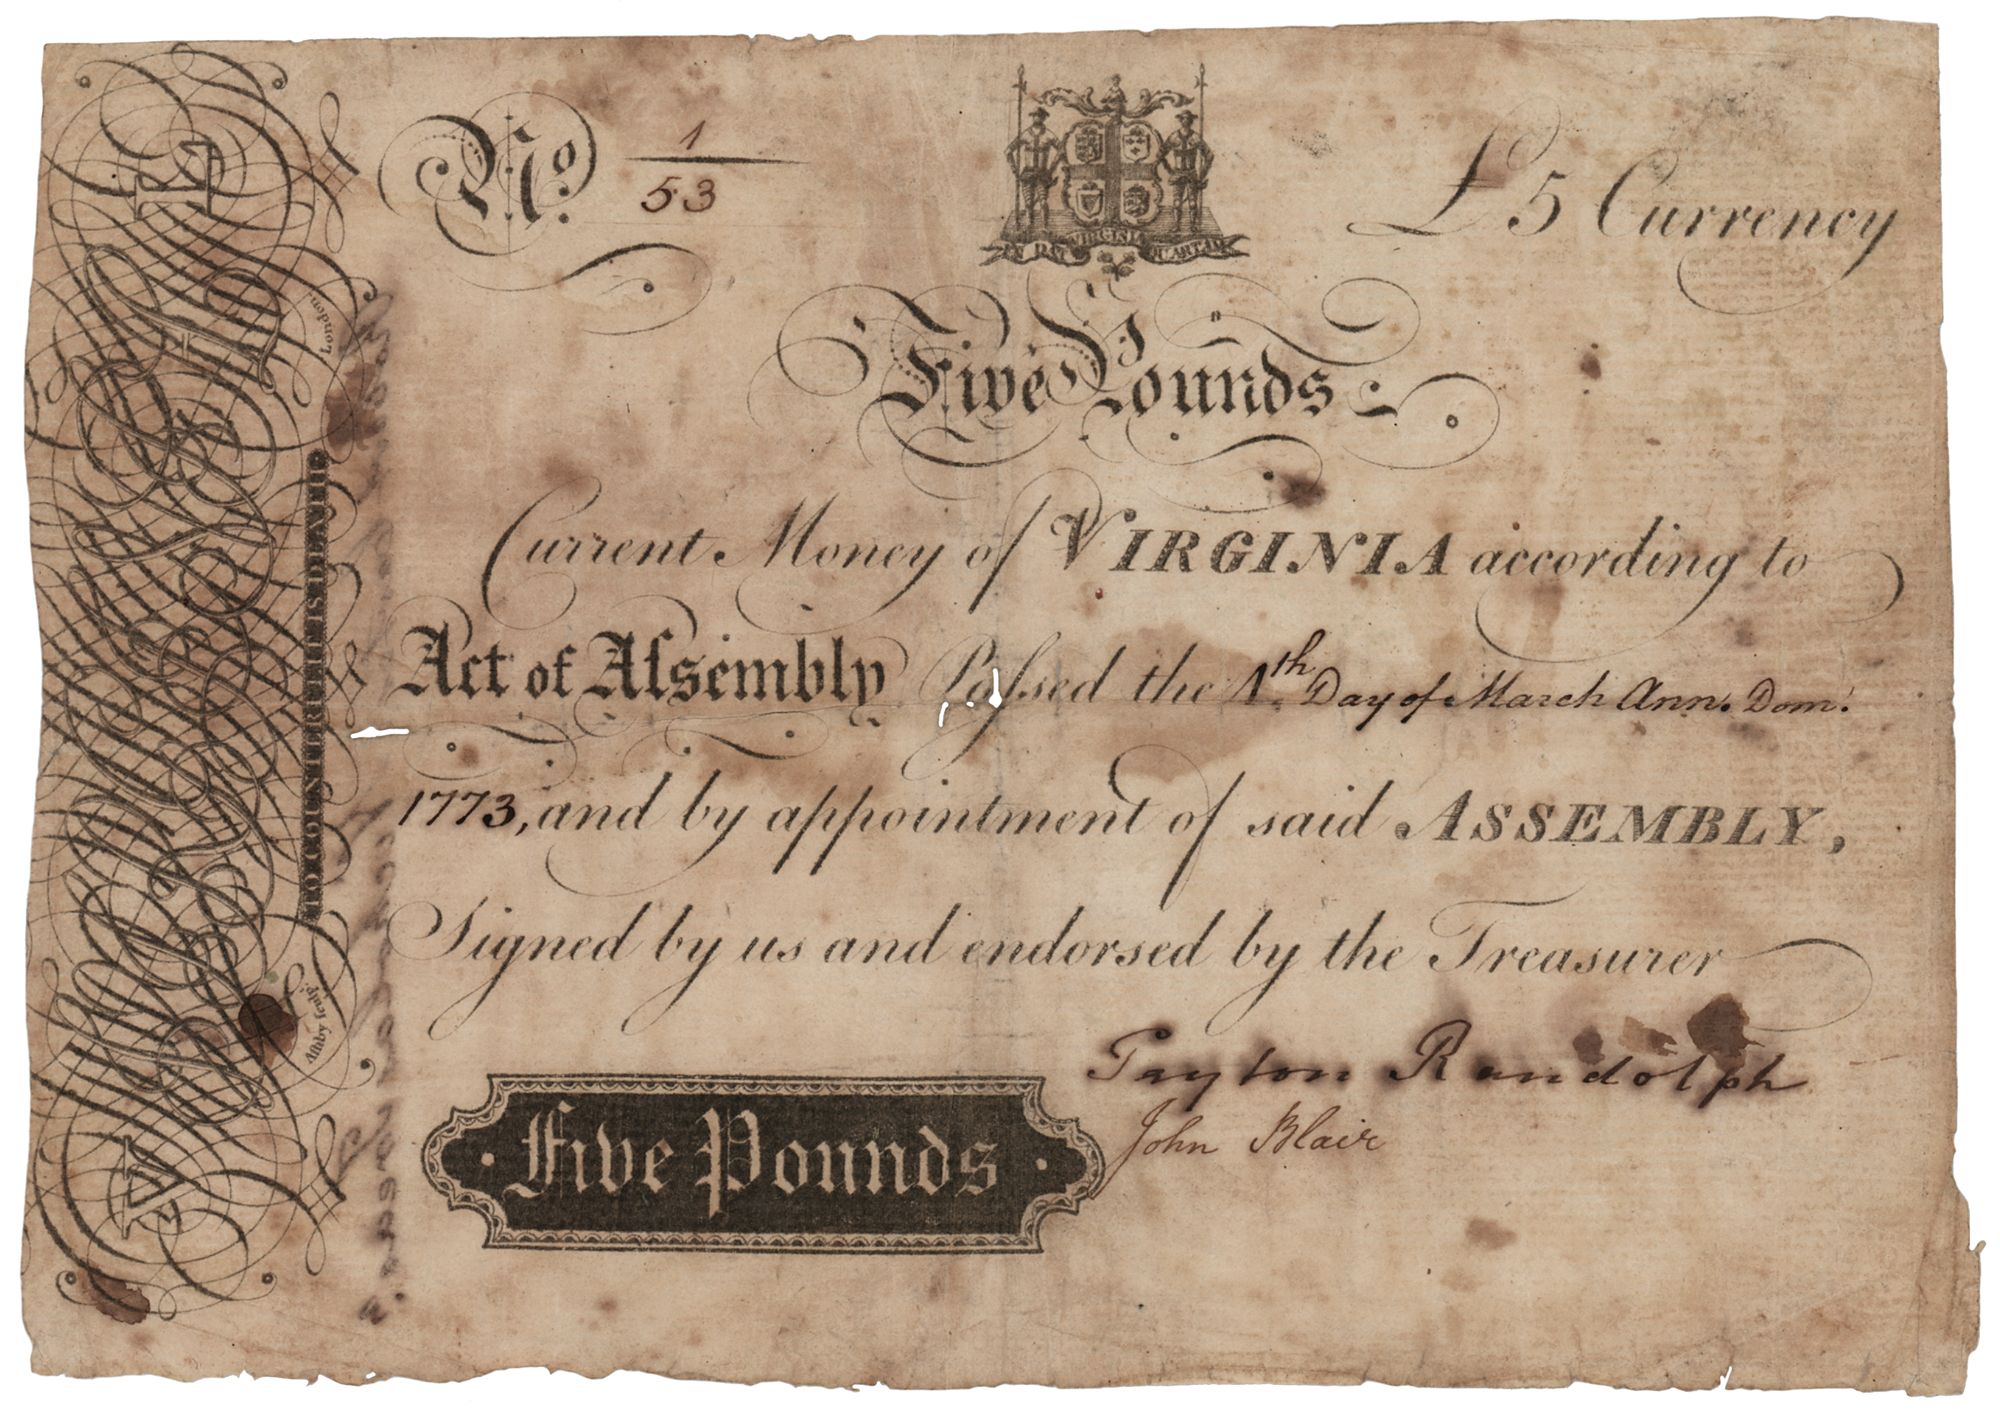 No. 1
53
EN DAT VIRGINIA QUARTAM
£ 5 Currency
Five Pounds
Current Money of VIRGINIA according to
Act of Aſsembly Paſsed the 4th. Day of March Ann. Dom:
1773, and by appointment of said ASSEMBLY,
Signed by us and endorsed by the Treasurer
Peyton Randolph
John Blair
Five Pounds
TO COUNTERFEIT IS DEATH
Ashby ſculp.
London.